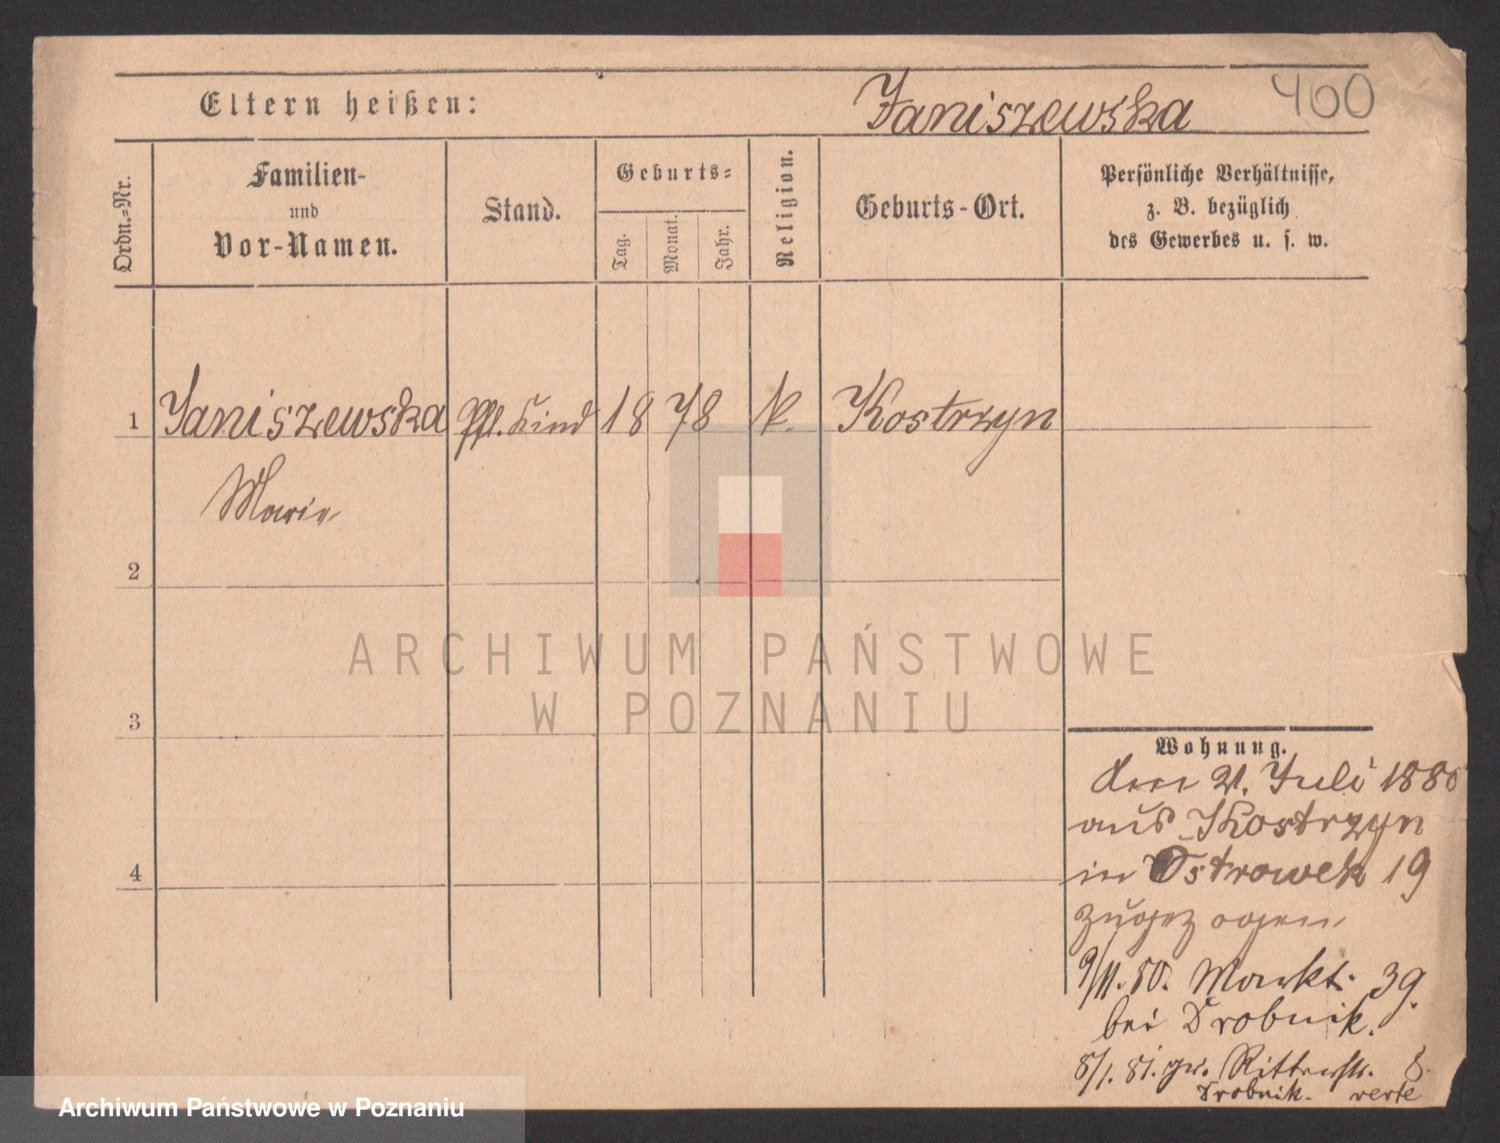 Eltern heißen:
Janiszewska 400
Ordn.=Nr.
Familien-
und
Vor-Namen.
Stand.
Geburts=
Tag.
Monat.
Jahr.
Religion.
Geburts-Ort.
Persönliche Verhältnisse,
z. B. bezüglich
des Gewerbes u. s. w.
1 Janiszewska Pfl. Kind 1878 k. Kostrzyn
Marie
2
3
4
ARCHIWUM PAŃSTWOWE
W POZNANIU
Wohnung.
den 21. Juli 1880
aus Kostrzyn
in Ostrowek 19
zugezogen
9/11. 80. Markt. 39.
bei Drobnik.
8/1. 81. Ritterstr. 8.
Drobnik. verte
Archiwum Państwowe w Poznaniu